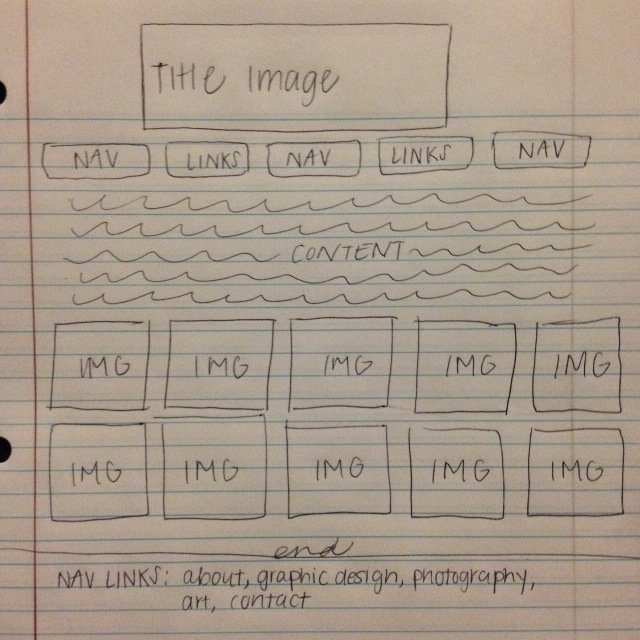 Title Image
NAV LINKS NAV LINKS NAV
CONTENT
IMG IMG IMG IMG IMG
IMG IMG IMG IMG IMG
end
NAV LINKS: about, graphic design, photography,
art, contact